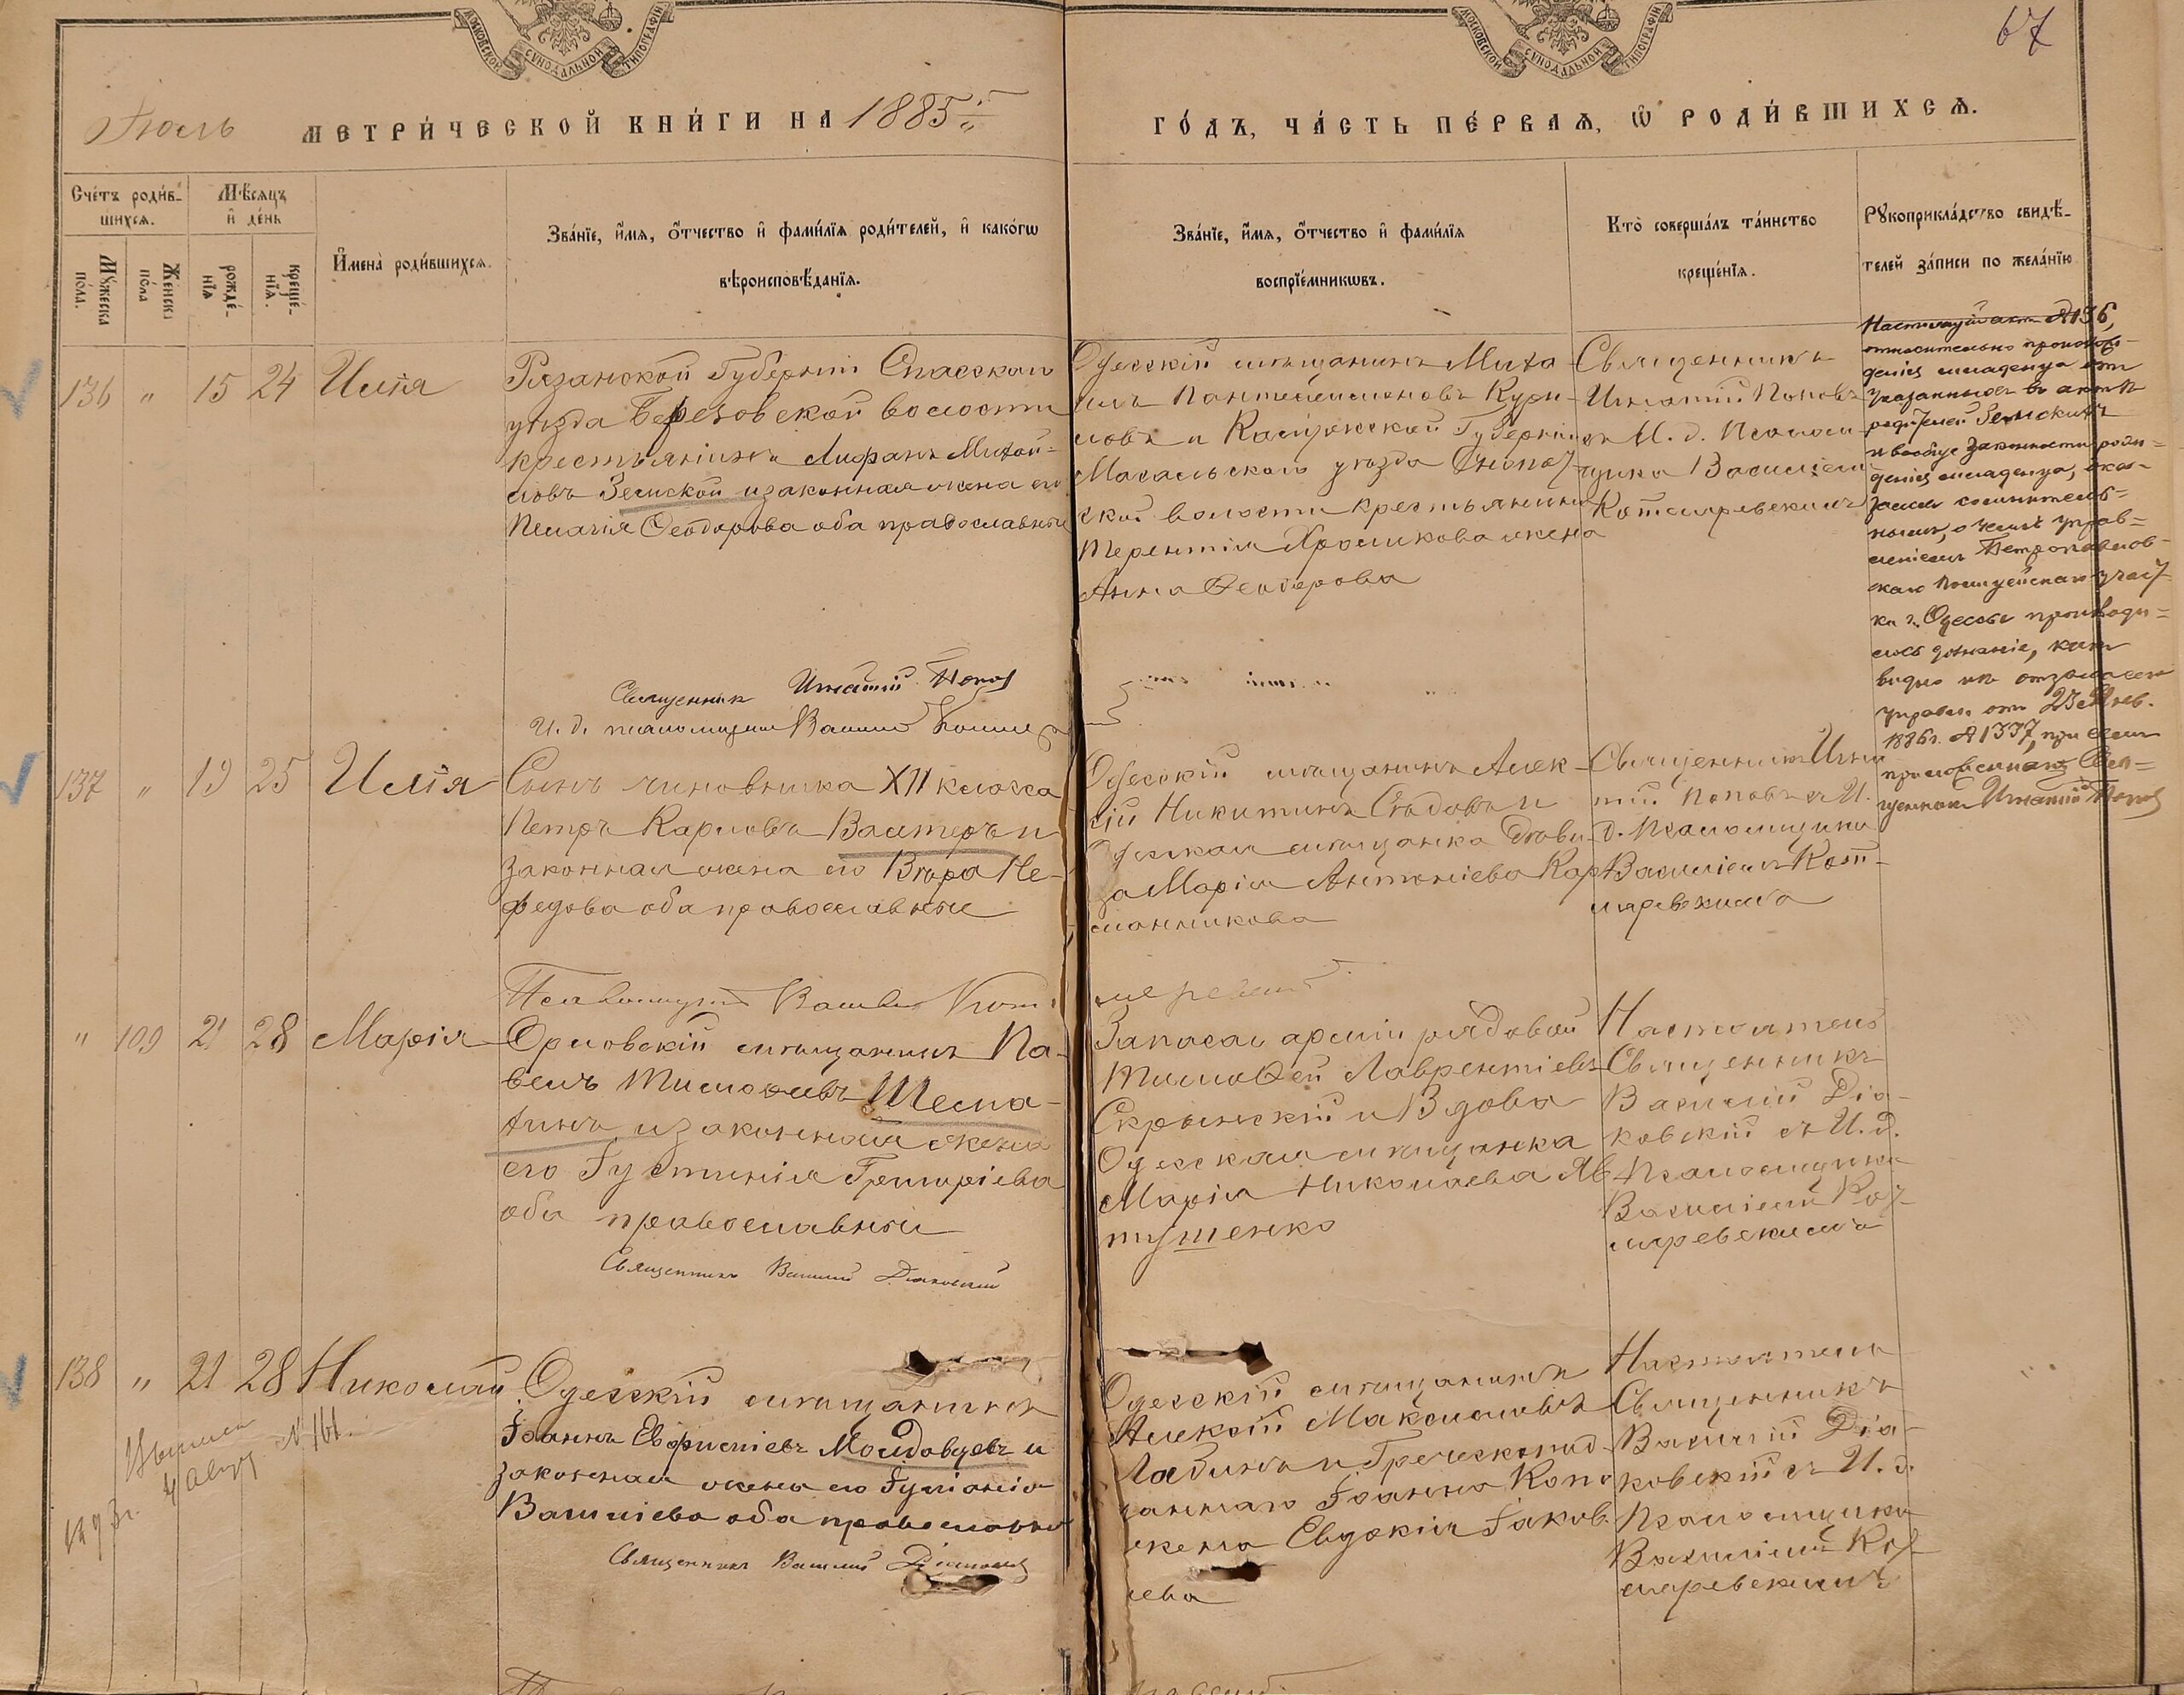 МОСКОВСКОЙ СУНОДАЛЬНОЙ ТИПОГРАФІИ
МОСКОВСКОЙ СУНОДАЛЬНОЙ ТИПОГРАФІИ
67
Іюль МЕТРИ́ЧЕСКОЙ КНИ́ГИ НА 1885
ГО́ДЪ, ЧА́СТЬ ПЕ́РВАѦ, Ѡ҆ РОДИ́ВШИХСѦ.
Сче́тъ роди́в-
шихсѧ.
Мꙋ́жеска
по́ла.
Же́нска
по́ла
Мѣ́сѧцъ
и҆ де́нь
рожде́-
нїѧ
креще́-
нїѧ.
И҆мена̀ роди́вшихсѧ.
Зва́нїе, и҆́мѧ, ѻ҆́тчество и҆ фами́лїѧ роди́телей, и҆ како́гѡ
вѣроисповѣ́данїѧ.
Зва́нїе, и҆́мѧ, ѻ҆́тчество и҆ фами́лїѧ
воспрїе́мникѡвъ.
Кто̀ соверша́лъ та́инство
креще́нїѧ.
Рꙋкоприкла́дство свидѣ́-
телей за́писи по жела́нїю
136 " 15 24 Илія
Рязанской Губерніи Спасскаго
уѣзда Березовской волости
крестьянинъ
Земской и законная жена его
Пелагія Ѳеодорова оба православные
Священникъ Игнатій Попов
И. д. псаломщика Василій
Одесскій мѣщанинъ Миха-
илъ Пантелеимоновъ Кури-
ловъ и Калужской Губерніи
Масальскаго уѣзда
ской волости крестьянина
Терентія Хромикова жена
Анна Ѳеодорова
Священникъ
Игнатій Поповъ
съ И. д. Псалом-
щика Василіемъ
Котляревскимъ
Настоящій актъ №136,
относительно происхож-
денія младенца отъ
указанныхъ въ актѣ
родителей Земскихъ
и вообще законности рож-
денія младенца, ока-
зался сомнитель-
нымъ, о чемъ управ-
леніемъ Петропавлов-
скаго полицейскаго участ-
ка г. Одессы производи-
лось дознаніе, какъ
видно изъ отзыва сего
управл. отъ 23 Янв.
1886г. №1337, при чемъ
Свя-
щенникъ Игнатій Попов
137 " 19 25 Илія
Сынъ чиновника XII класса
Петръ Карловъ Валтеръ и
законная жена его Вѣра Не-
федова оба православные
Псаломщикъ Василій Кот-
ляревскій
Одесскій мѣщанинъ Алек-
сій Никитинъ Сѣдовъ и
Одесская мѣщанка вдови-
ца Марія Антоніева Кар-
манникова
Священникъ Игна-
тій Поповъ съ И.
д. Псаломщика
Василіемъ Кот-
ляревскимъ
" 109 21 28 Марія
Орловскій мѣщанинъ Па-
велъ Тимоѳеевъ Шелпа-
хинъ и законная жена
его Іустинія Григоріева
оба православные
Священникъ Василій Діаковскій
Запаса арміи рядовой
Тимоѳей Лаврентіевъ
Скрынскій и вдова
Одесская мѣщанка
Марія Николаева Яв-
тушенко
Настоятель
Священникъ
Василій Діа-
ковскій съ И. д.
Псаломщика
Василіемъ Кот-
ляревскимъ
138 " 21 28 Николай
4 Авгу № 161.
1893г.
Одесскій мѣщанинъ
Іоаннъ Евфиміевъ Молдовцевъ и
законная жена его Іуліанія
Василіева оба православные
Священникъ Василій Діаковскій
Одесскій мѣщанинъ
Алексій Максимовъ
Лабинъ и Греческоподд
аннаго Іоанна Копо
жена Евдокія Іаков-
лева
Настоятель
Священникъ
Василій Діа-
ковскій съ И. д.
Псаломщика
Василіемъ Кот-
ляревскимъ